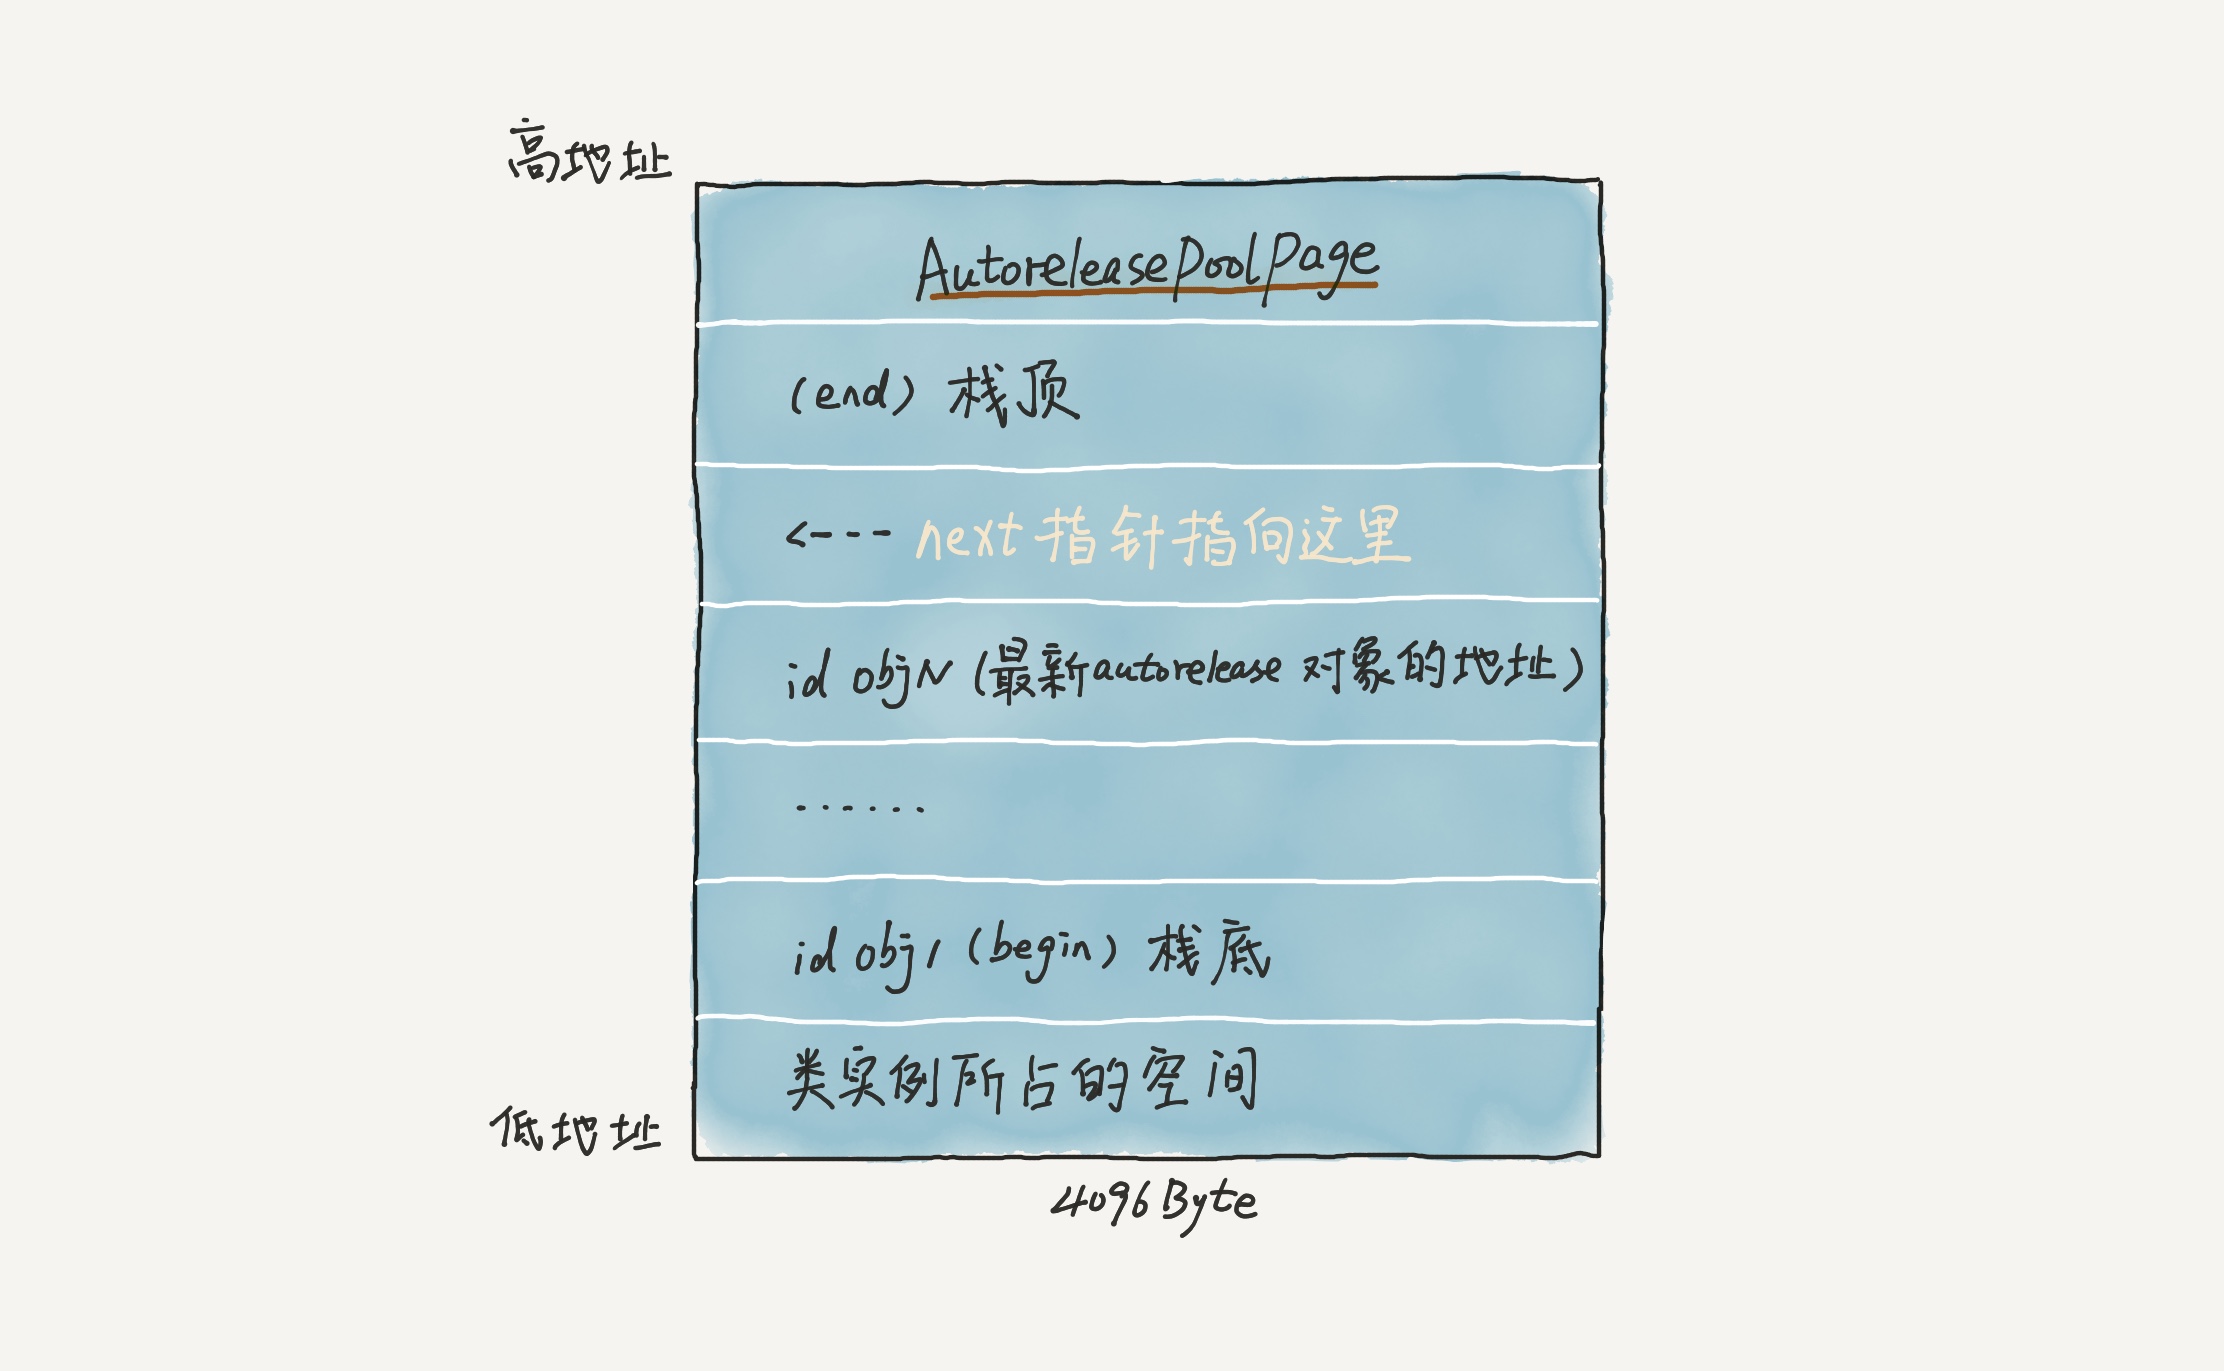 高地址
AutoreleasePoolPage
(end) 栈顶
<--- next 指针指向这里
id objN (最新autorelease 对象的地址)
······
id obj1 (begin) 栈底
类实例所占的空间
低地址
4096 Byte